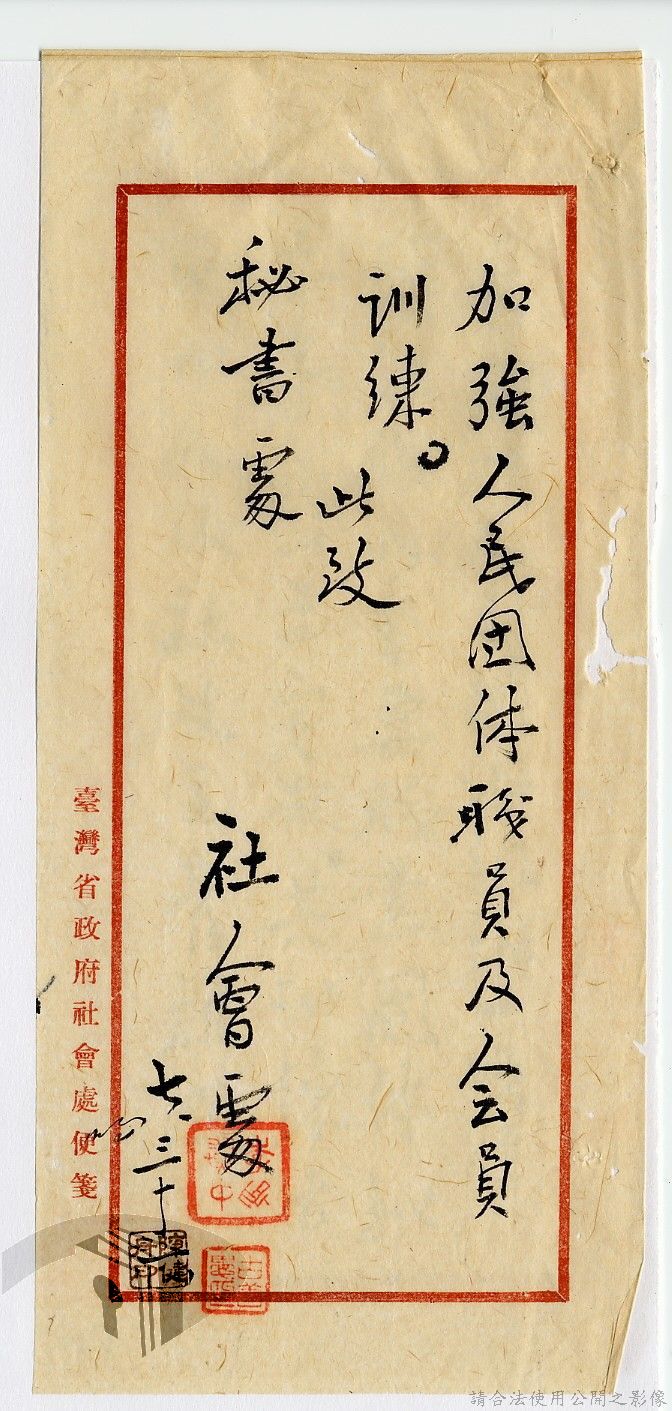 加強人民团体職員及会員
訓練。
此致
秘書處
社會處
七.三十
臺灣省政府社會處便箋
請合法使用公開之影像